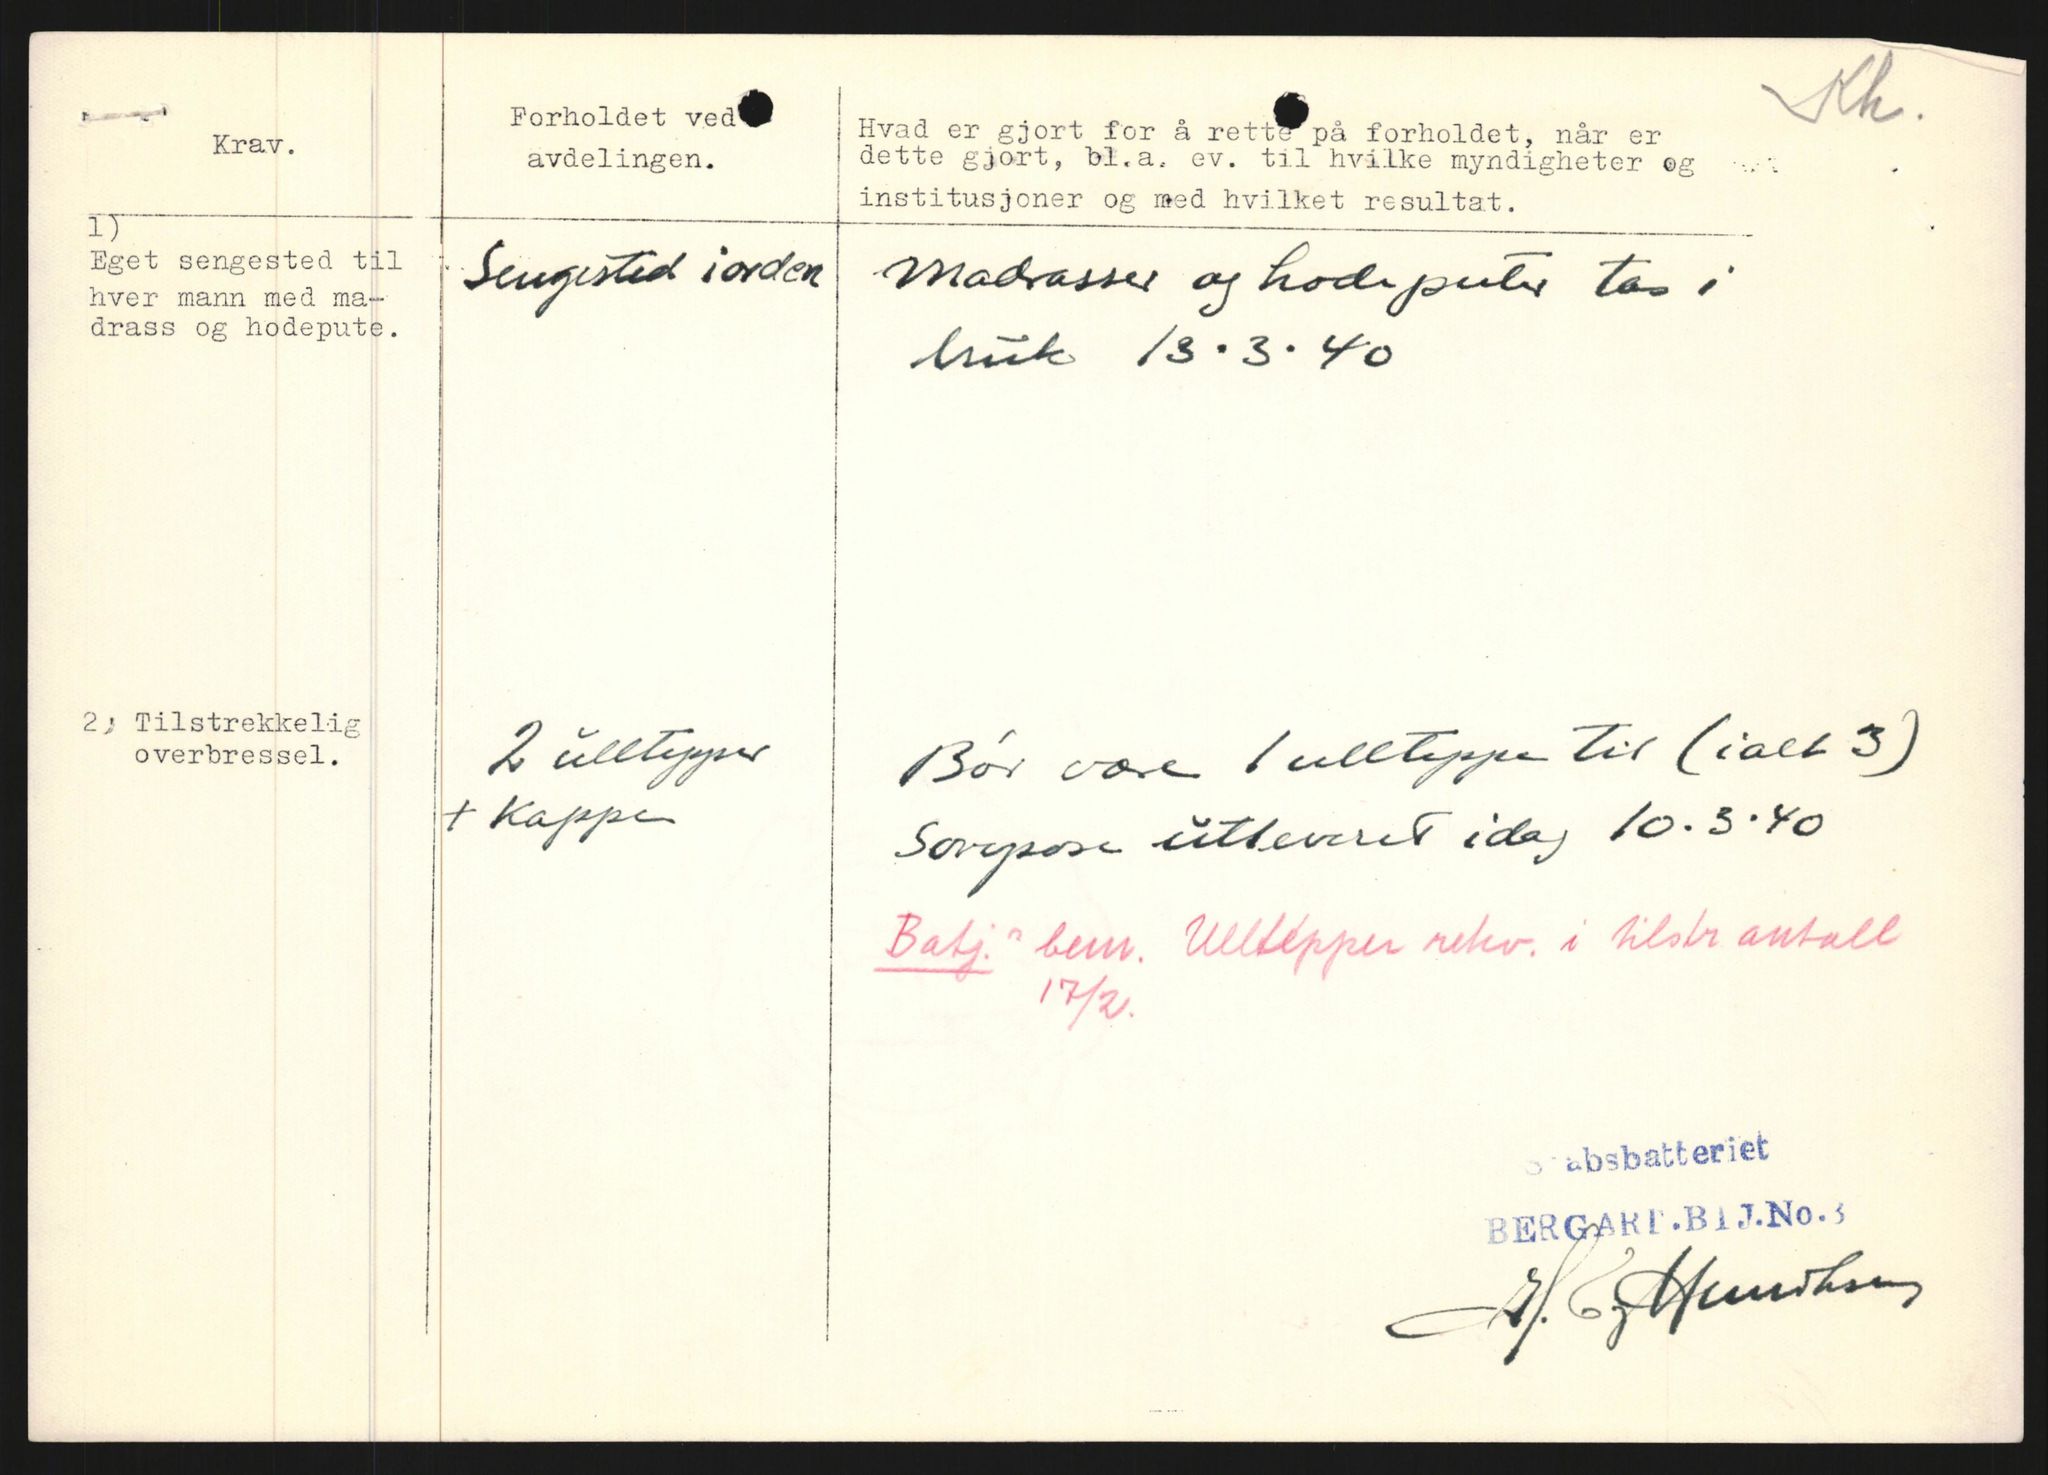 Kh.
Krav.
Forholdet ved
avdelingen.
Hvad er gjort for å rette på forholdet, når er
dette gjort, bl.a. ev. til hvilke myndigheter og
institusjoner og med hvilket resultat.
1)
Eget sengested til
hver mann med ma-
drass og hodepute.
Sengested i orden
Madrasser og hodeputer tas i
bruk 13.3.40
2) Tilstrekkelig
overbressel.
2 ulltepper
+ Kappe
Bør være 1 ullteppe til (ialt 3)
Sovepose utleveret idag 10.3.40
Batj. bem. Ulltepper rekv. i tilstr antall
17/2.
Stabsbatteriet
BERGART.BTJ.No.3
Henriksen